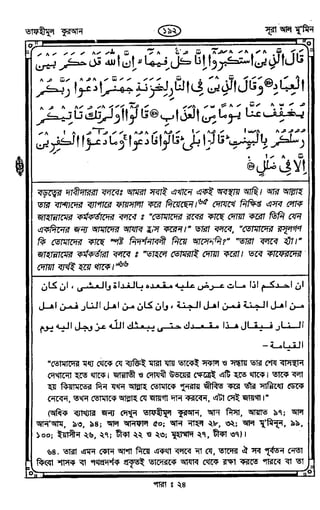 তাফহীমুল কুরআন
১৯২
সূরা আল মু'মিন
قَالَ الَّذِينَ اسْتَكْبَرُوا إِنَّا كُلٌّ فِيهَا إِنَّ اللهَ قَدْ حَكَمَ بَيْنَ
الْعِبَادِ وَقَالَ الَّذِينَ فِي النَّارِ لِخَزَنَةِ جَهَنَّمَ ادْعُوا رَبَّكُمْ
يُخَفِّفْ عَنَّا يَوْمًا مِّنَ الْعَذَابِ قَالُوا أَوَلَمْ تَكُ تَأْتِيكُمْ
رُسُلُكُمْ بِالْبَيِّنٰتِ قَالُوا بَلٰى قَالُوا فَادْعُوا وَمَا دُعٰؤُا الْكٰفِرِينَ
إِلَّا فِي ضَلٰلٍ
বড়ত্বের দাবীদাররা বলবেঃ আমরা সবাই এখানে একই অবস্থায় আছি। আর আল্লাহ
তার বান্দাদের ব্যাপারে ফায়সালা করে দিয়েছেন। দোযখে নিক্ষিপ্ত এসব লোক
জাহান্নামের কর্মকর্তাদের বলবেঃ "তোমাদের রবের কাছে দোয়া করো তিনি যেন
একদিনের জন্য আমাদের আযাব হ্রাস করেন।" তারা বলবে, "তোমাদের রসূলগণ
কি তোমাদের কাছে স্পষ্ট নিদর্শনাবলী নিয়ে আসেননি?" "তারা বলবে হাঁ।"
জাহান্নামের কর্মকর্তারা বলবেঃ "তাহলে তোমরাই দোয়া করো। তবে কাফেরদের
দোয়া ব্যর্থই হয়ে থাকে।"
ان احدكم اذا مات عرض عليه مقعده بالغداة والعشى، ان كان
من اهل الجنة فمن اهل الجنة، وان كان من اهل النار فمن اهل
النار فيقال هذا مقعدك حتى يبعثك الله عز وجل اليه يوم
القيامة -
"তোমাদের মধ্য থেকে যে ব্যক্তিই মারা যায় তাকেই সকাল ও সন্ধ্যায় তার শেষ বাসস্থান
দেখানো হতে থাকে। জান্নাতী ও দোযখী উভয়ের ক্ষেত্রেই এটি হতে থাকে। তাকে বলা
হয় কিয়ামতের দিন যখন আল্লাহ তোমাকে পুনরায় জীবিত করে তাঁর সান্নিধ্যে ডেকে
নেবেন, তখন তোমাকে আল্লাহ যে জায়গা দান করবেন, এটা সেই জায়গা।"
(অধিক ব্যাখ্যার জন্য দেখুন তাফহীমুল কুরআন, আন নিসা, আয়াত ৯৭; আল
আন'আম, ৯৩, ৯৪; আল আনফাল ৫০; আন নাহল ২৮, ৩২; আল মু'মিনূন, ৯৯,
১০০; ইয়াসীন ২৬, ২৭; টীকা ২২ ও ২৩; মুহাম্মাদ ২৭, টীকা ৩৭)।
৬৪. তারা এমন কোন আশা নিয়ে একথা বলবে না যে, তাদের ঐ সব পূর্বতন নেতা
কিংবা শাসক বা পথপ্রদর্শক প্রকৃতই তাদেরকে আযাব থেকে রক্ষা করতে পারবে বা তা
পারা : ২৪